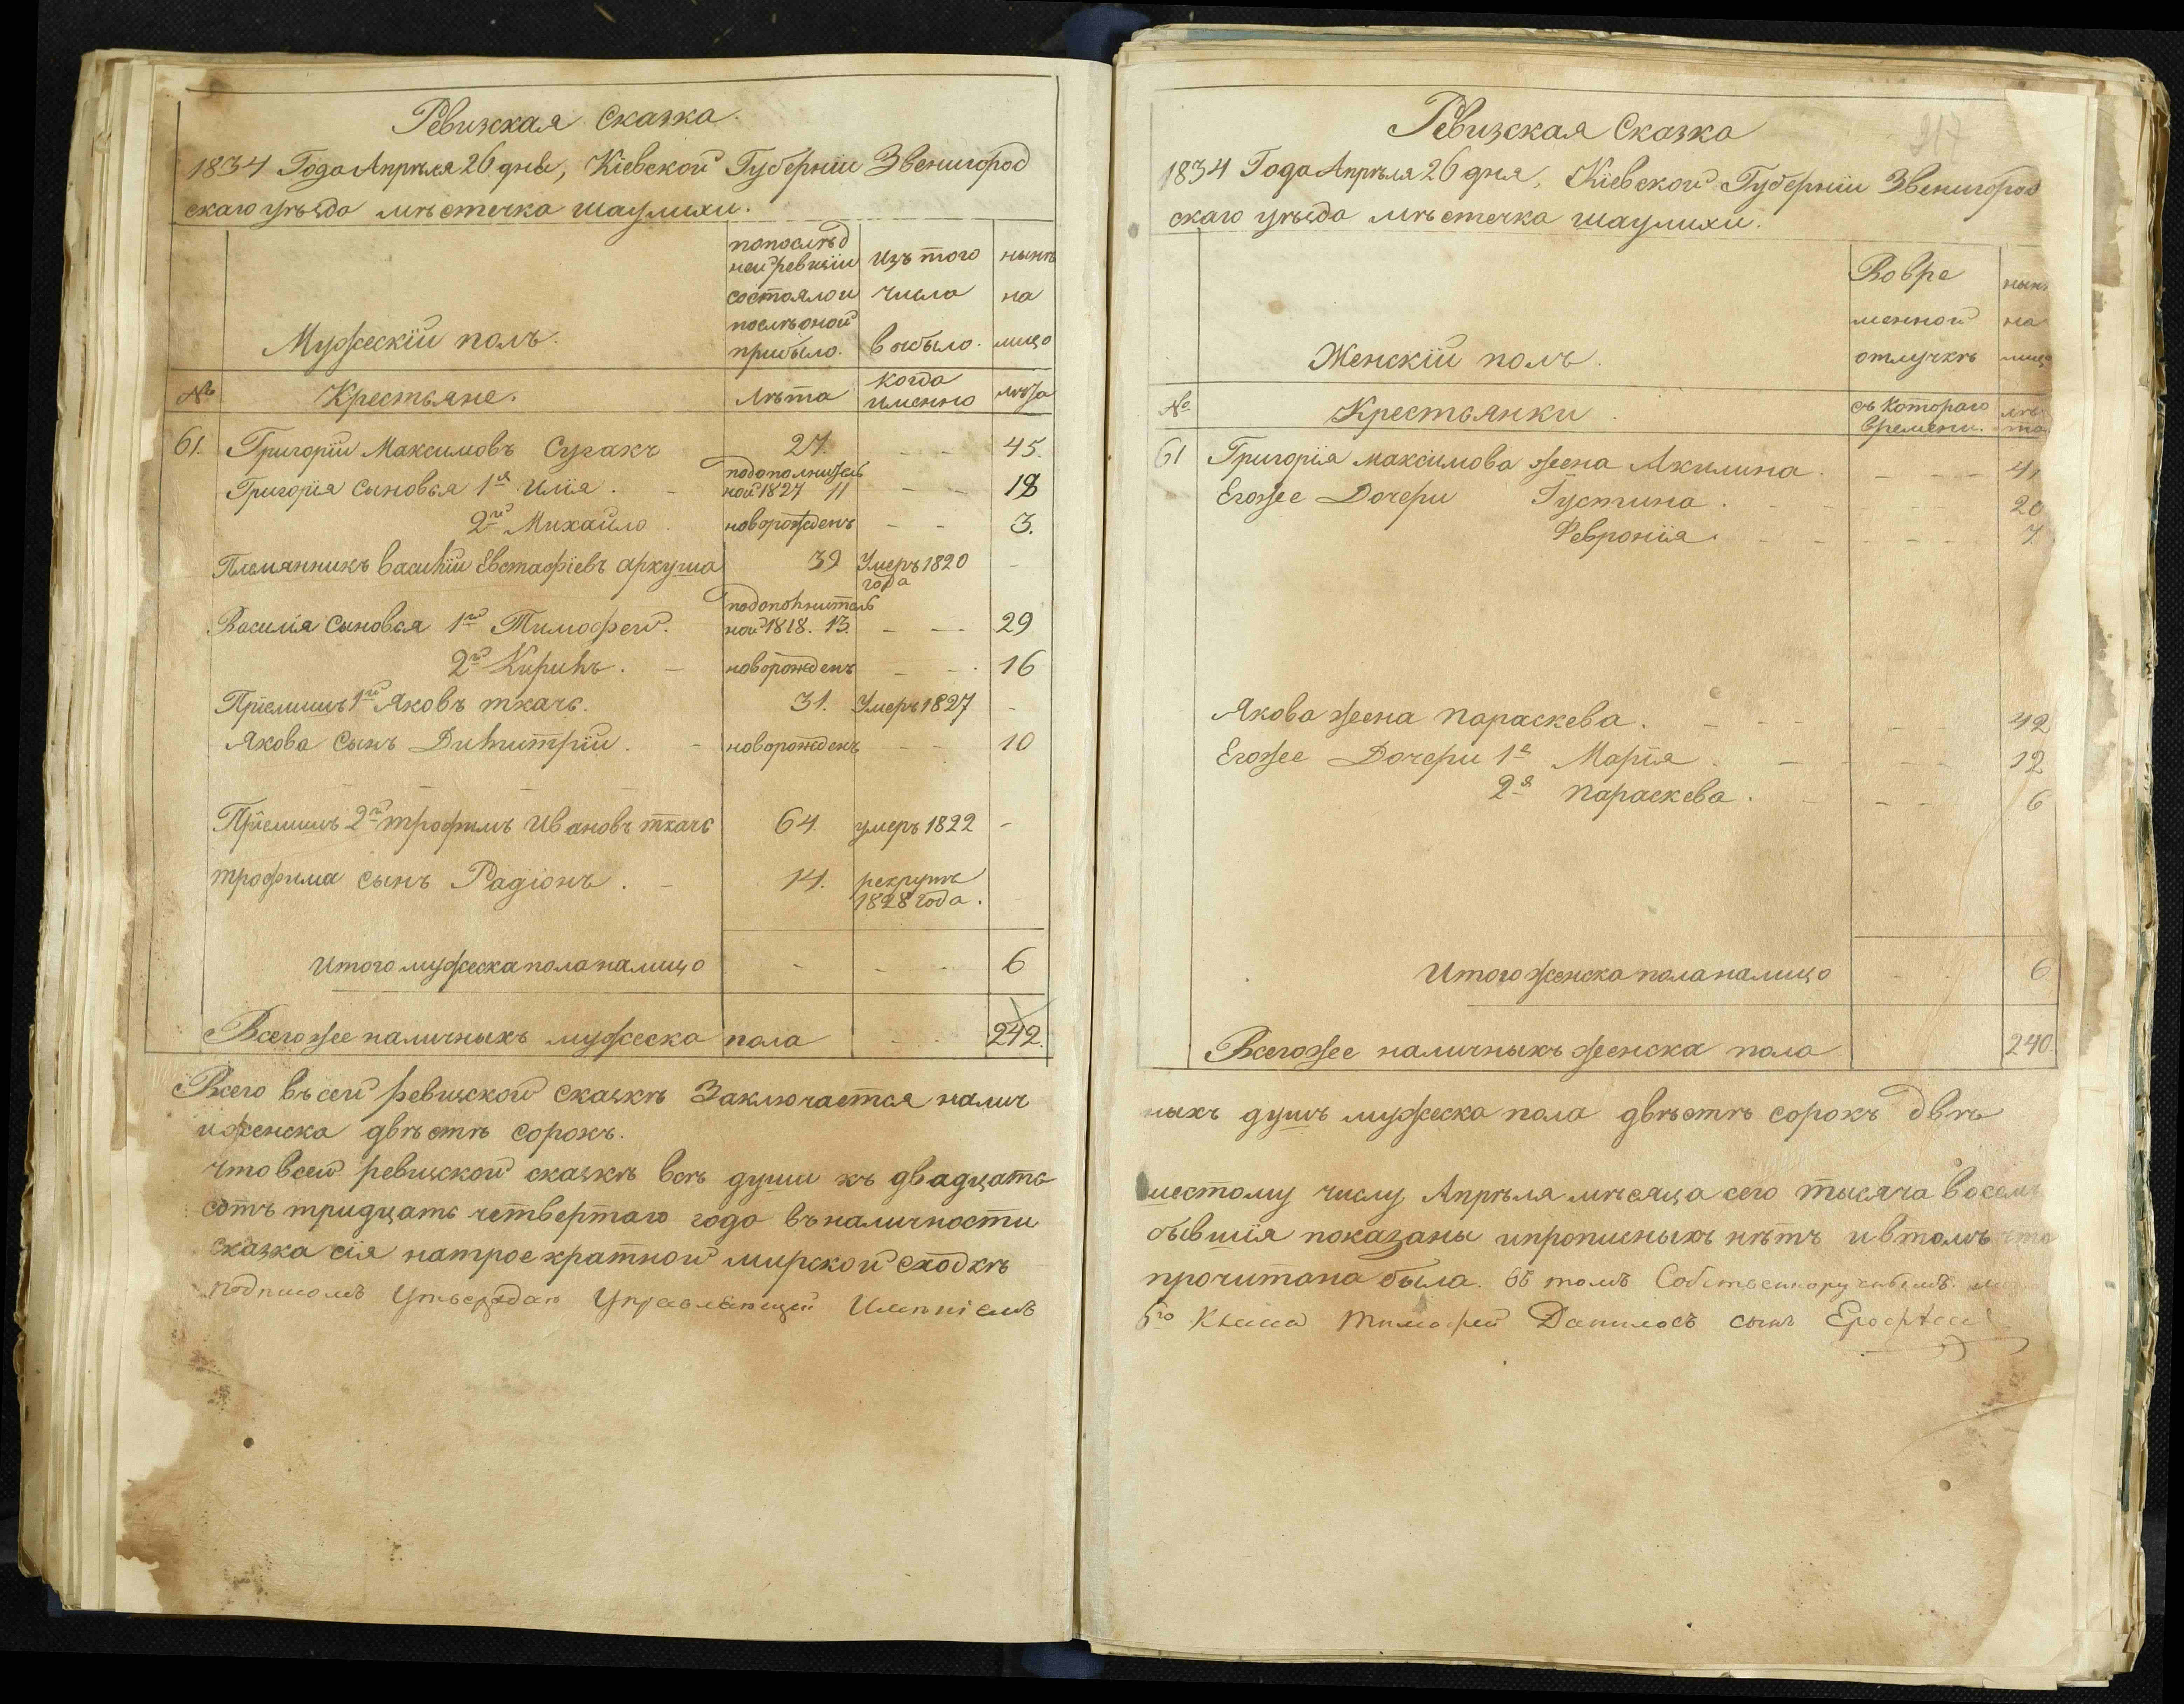 Ревизская Сказка.
1834 Года Апрѣля 26 дня, Кіевской Губерніи Звенигород
скаго уѣзда мѣстечка шаулихи.
Мужескій полъ.
попослѣд
ней ревизіи
состоялои
послѣоной
прибыло.
изъ того
числа
выбыло.
нынѣ
на
лицо
№
Крестьяне.
Лѣта
когда
именно
лѣта
61. Григорій Максимовъ Сугакъ 27. - - 45.
Григорія Сыновья 1й Илія. - подополнитель
ной 1827 11 - - 18
2й Михайло. новорожденъ - - 3.
Племянникъ василій Евстафіевъ аркуша 39 Умеръ 1820
года -
Василія Сыновья 1й Тимофей. подополнитель
ной 1818. 13. - - 29
2й Кирилъ. - новорожденъ - - 16
Пріемышъ 1й Яковъ ткачь. 31. Умеръ 1827 -
Якова Сынъ Димитрій. - новорожденъ - - 10
Пріемышъ 2й трофимъ Ивановъ ткачь 64. умеръ 1822 -
трофима сынъ Радіонъ. - 14. рекрутъ
1828 года.
Итого мужеска пола налицо - - - 6
Всегоже наличныхъ мужеска пола - - 242.
Всего въ сей ревизской сказкѣ Заключается налич
и женска двѣстѣ сорокъ.
что всей ревизской сказкѣ всѣ души къ двадцать
сотъ тридцать четвертаго года въ наличности
сказка сія натроекратной мирской сходкѣ
подписомъ Утверждаю Управляющій Имѣніемъ
217
Ревизская Сказка
1834 Года Апрѣля 26 дня, Кіевской Губерніи Звенигород
скаго уѣзда мѣстечка шаулихи.
Женскій полъ.
Вовре
менной
отлучкѣ
нынѣ
на
лицо
№
Крестьянки.
съ котораго
времени.
лѣ
та.
61 Григорія максимова жена Акилина. - - - 41
Егоже Дочери Густина. - - - 20
Феврониія. - - - 7.
Якова жена параскева. - - - 42
Егоже Дочери 1я Марія. - - - 12
2я параскева. - - - 6
Итого женска пола налицо - - 6
Всегоже наличныхъ женска пола 240.
ныхъ душъ мужеска пола двѣстѣ сорокъ двѣ
шестому числу Апрѣля мѣсяца сего тысяча восемь
бывшія показаны ипрописныхъ нѣтъ ивтомъ что
прочитана была. въ томъ Собственоручнымъ
5го Класса Тимофей Даниловъ сынъ Ерофеев